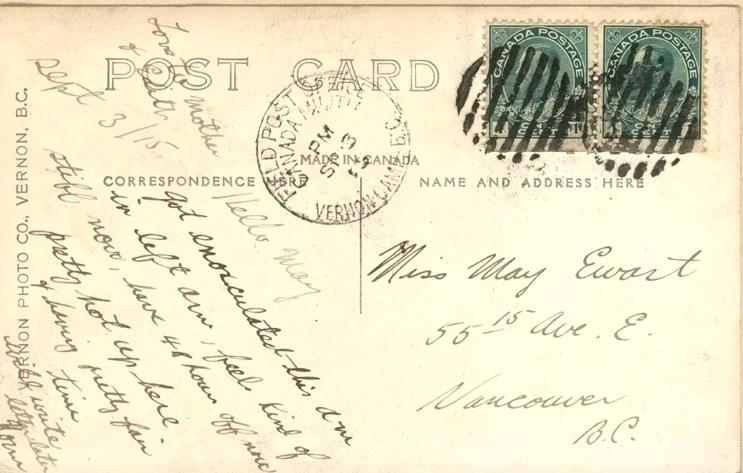 POST CARD
MADE IN CANADA
CORRESPONDENCE HERE
NAME AND ADDRESS HERE
VERNON PHOTO CO., VERNON, B.C.
CANADA POSTAGE
ONE CENT
CANADA POSTAGE
ONE CENT
FIELD POST
CANADA MILITIA
PM
SP 3
VERNON CAMP B.C.
Love to Mother
& Ruth
Sept 3/15
Hello May
got enoculated this a-m
in left arm, feels kind of
stiff now, have 48 hours off now
pretty hot up here
having pretty fair
time
will write
letter later
Miss May Ewart
55 15 Ave. E.
Vancouver
B.C.